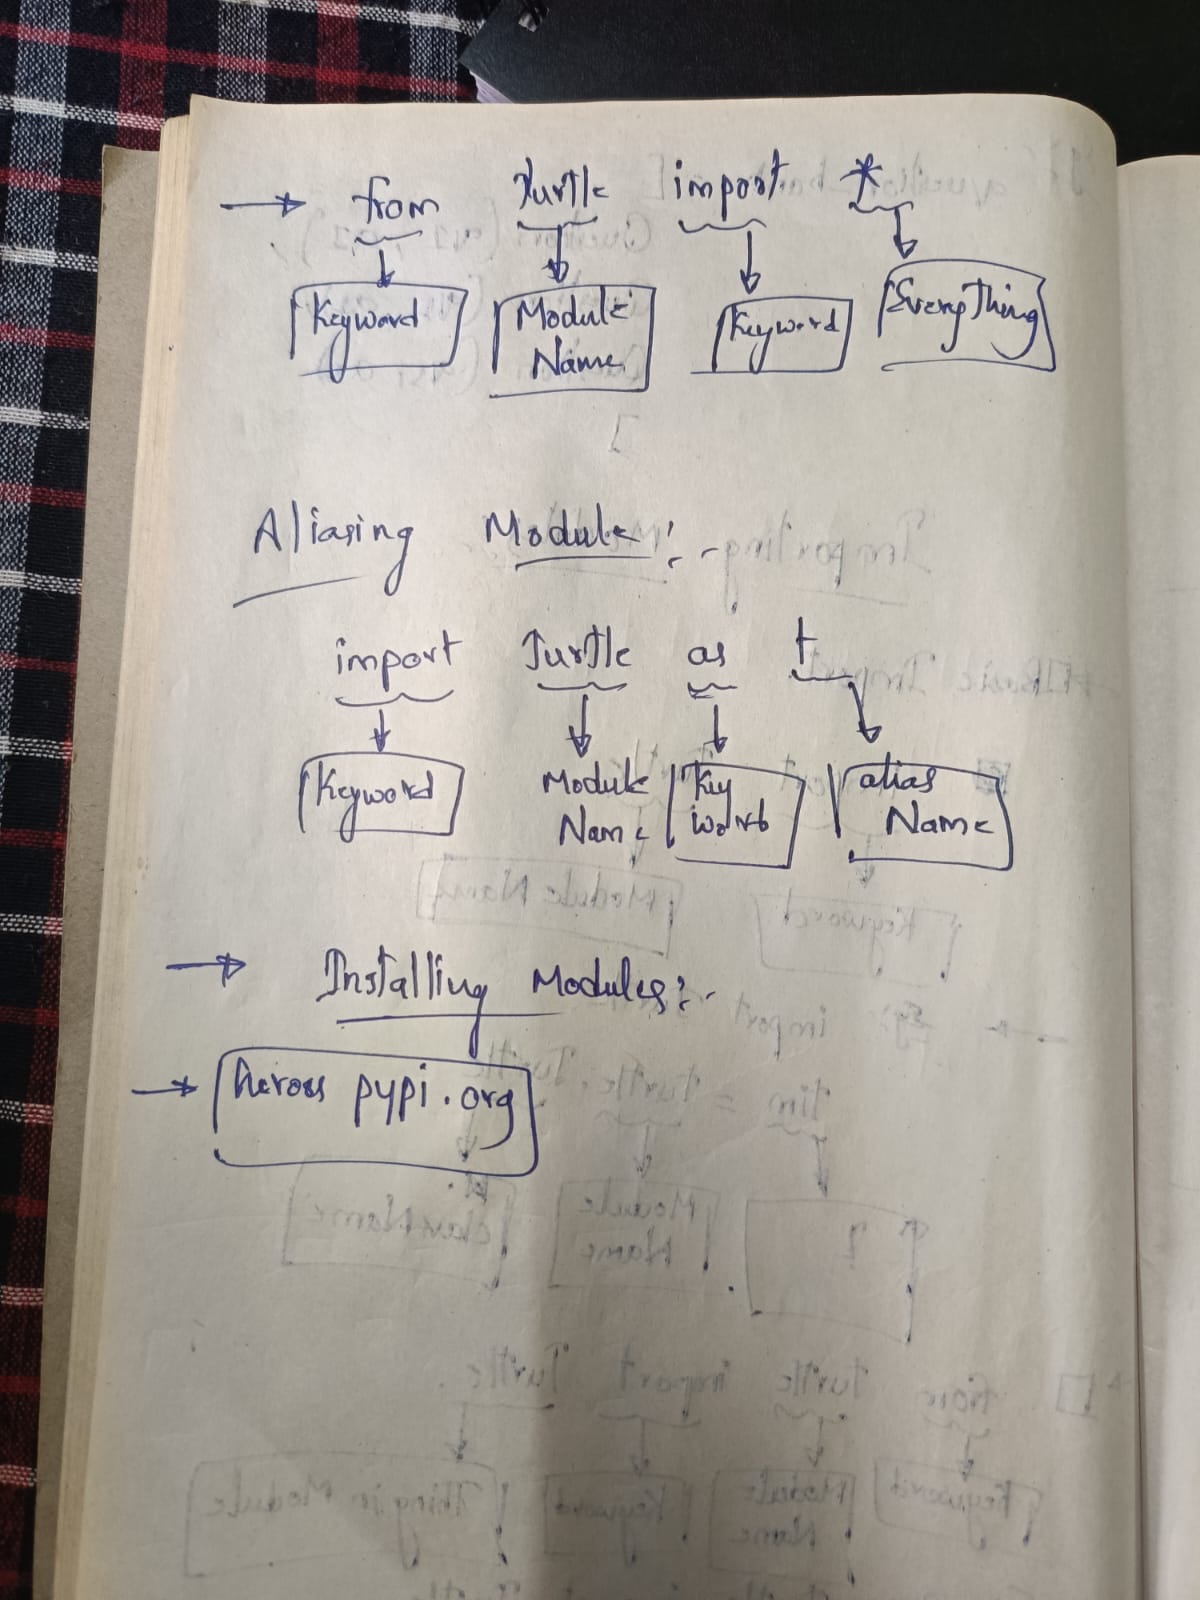 → from Turtle import *
Keyword Module Name Keyword EveryThing
Aliasing Module:-
import Turtle as t
Keyword Module Name Key word alias Name
→ Installing Modules:-
→ Across pypi.org